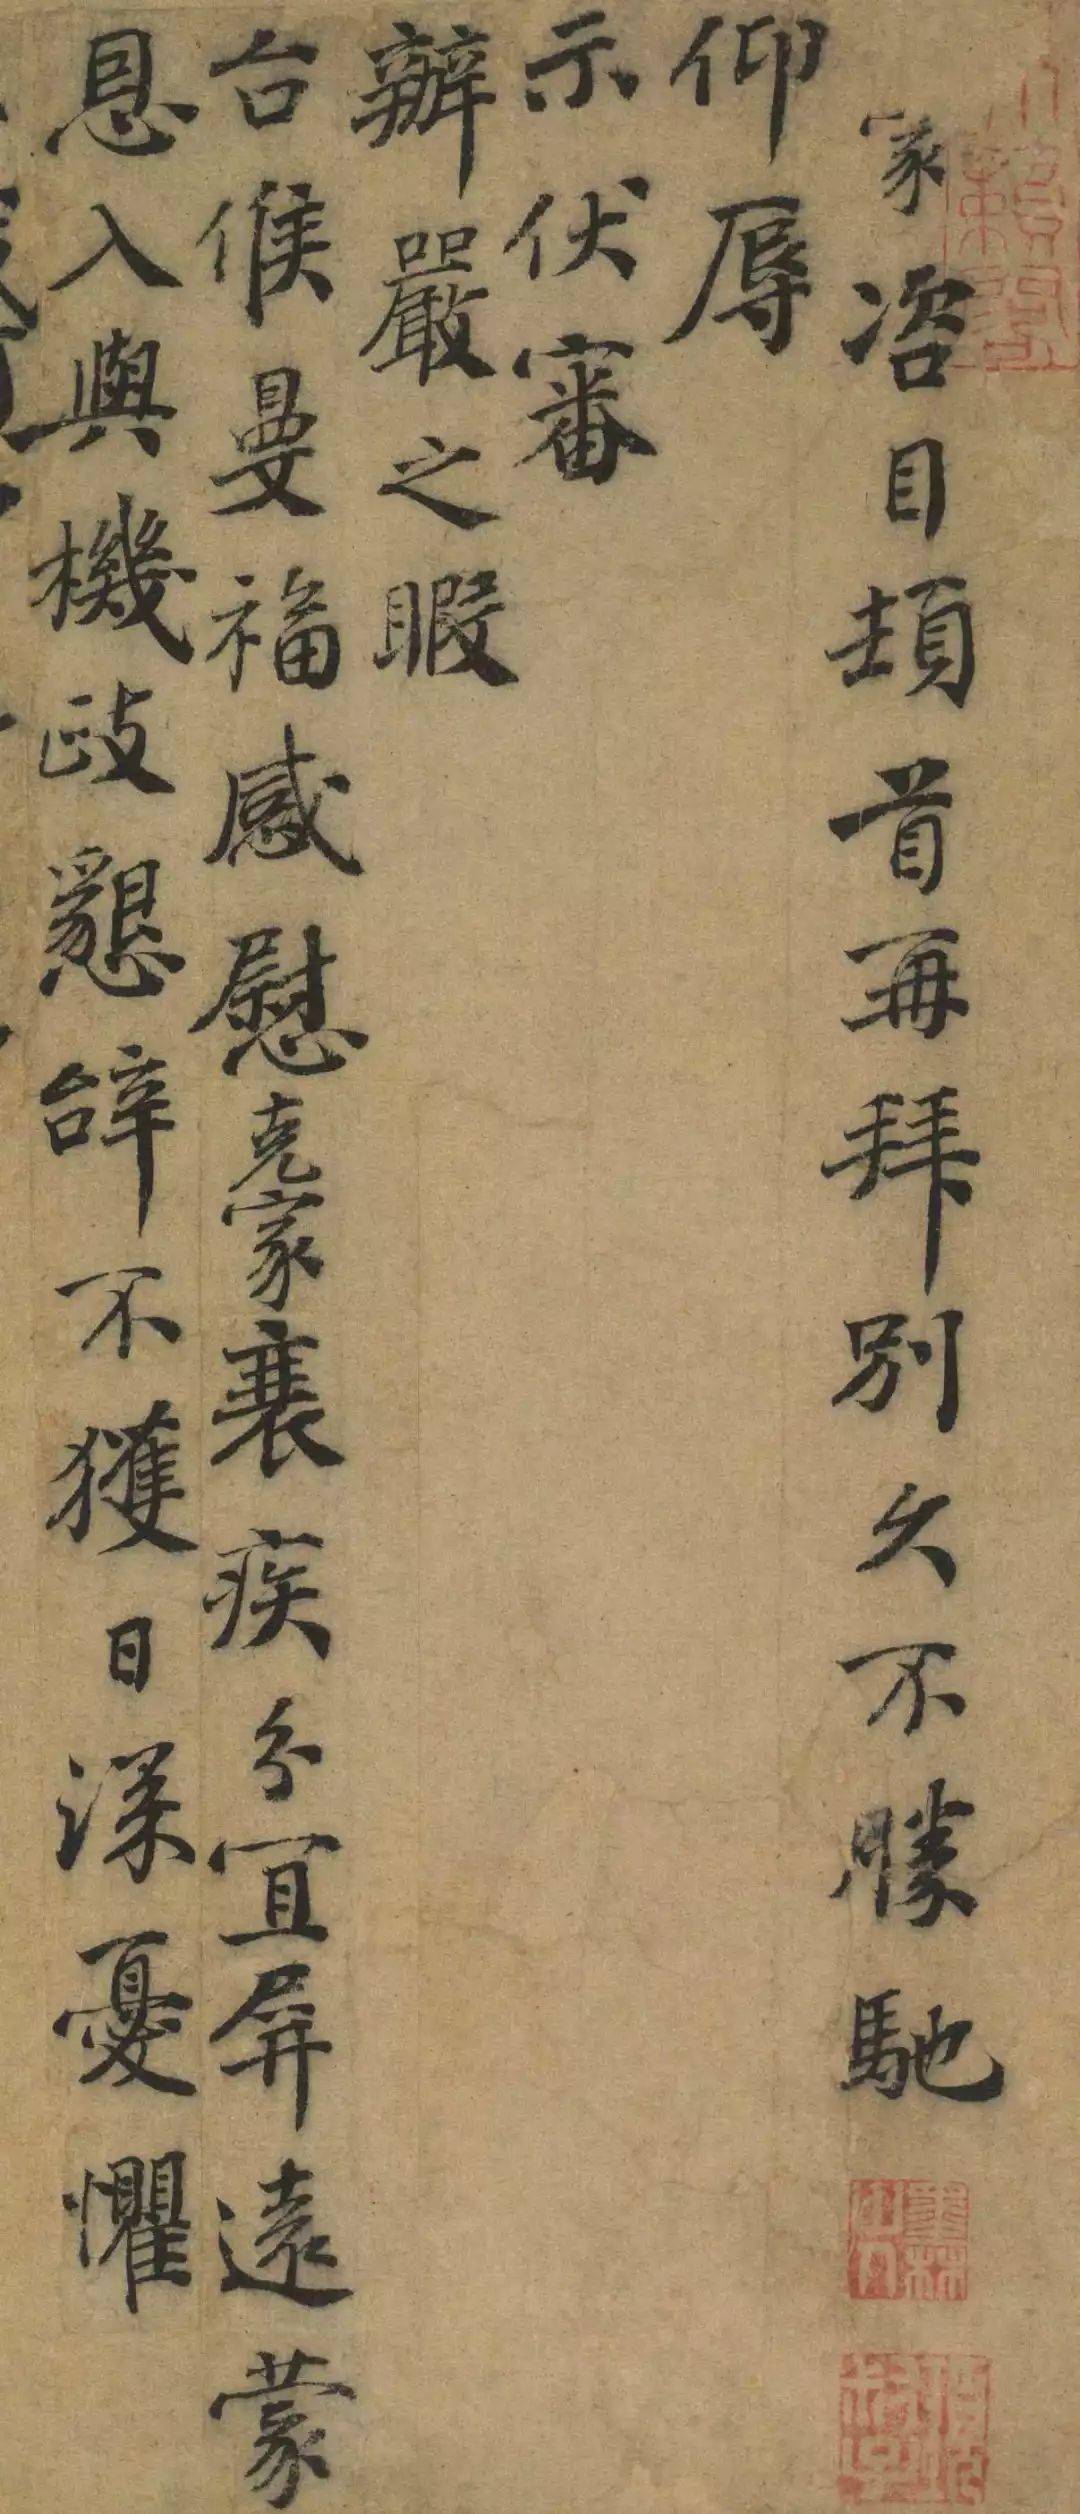 家咨目頓首再拜別久不勝馳
仰辱
示伏審
辦嚴之暇
台候曼福感慰克家衰疾分宜屏遠蒙
恩入與機政懇辭不獲日深憂懼